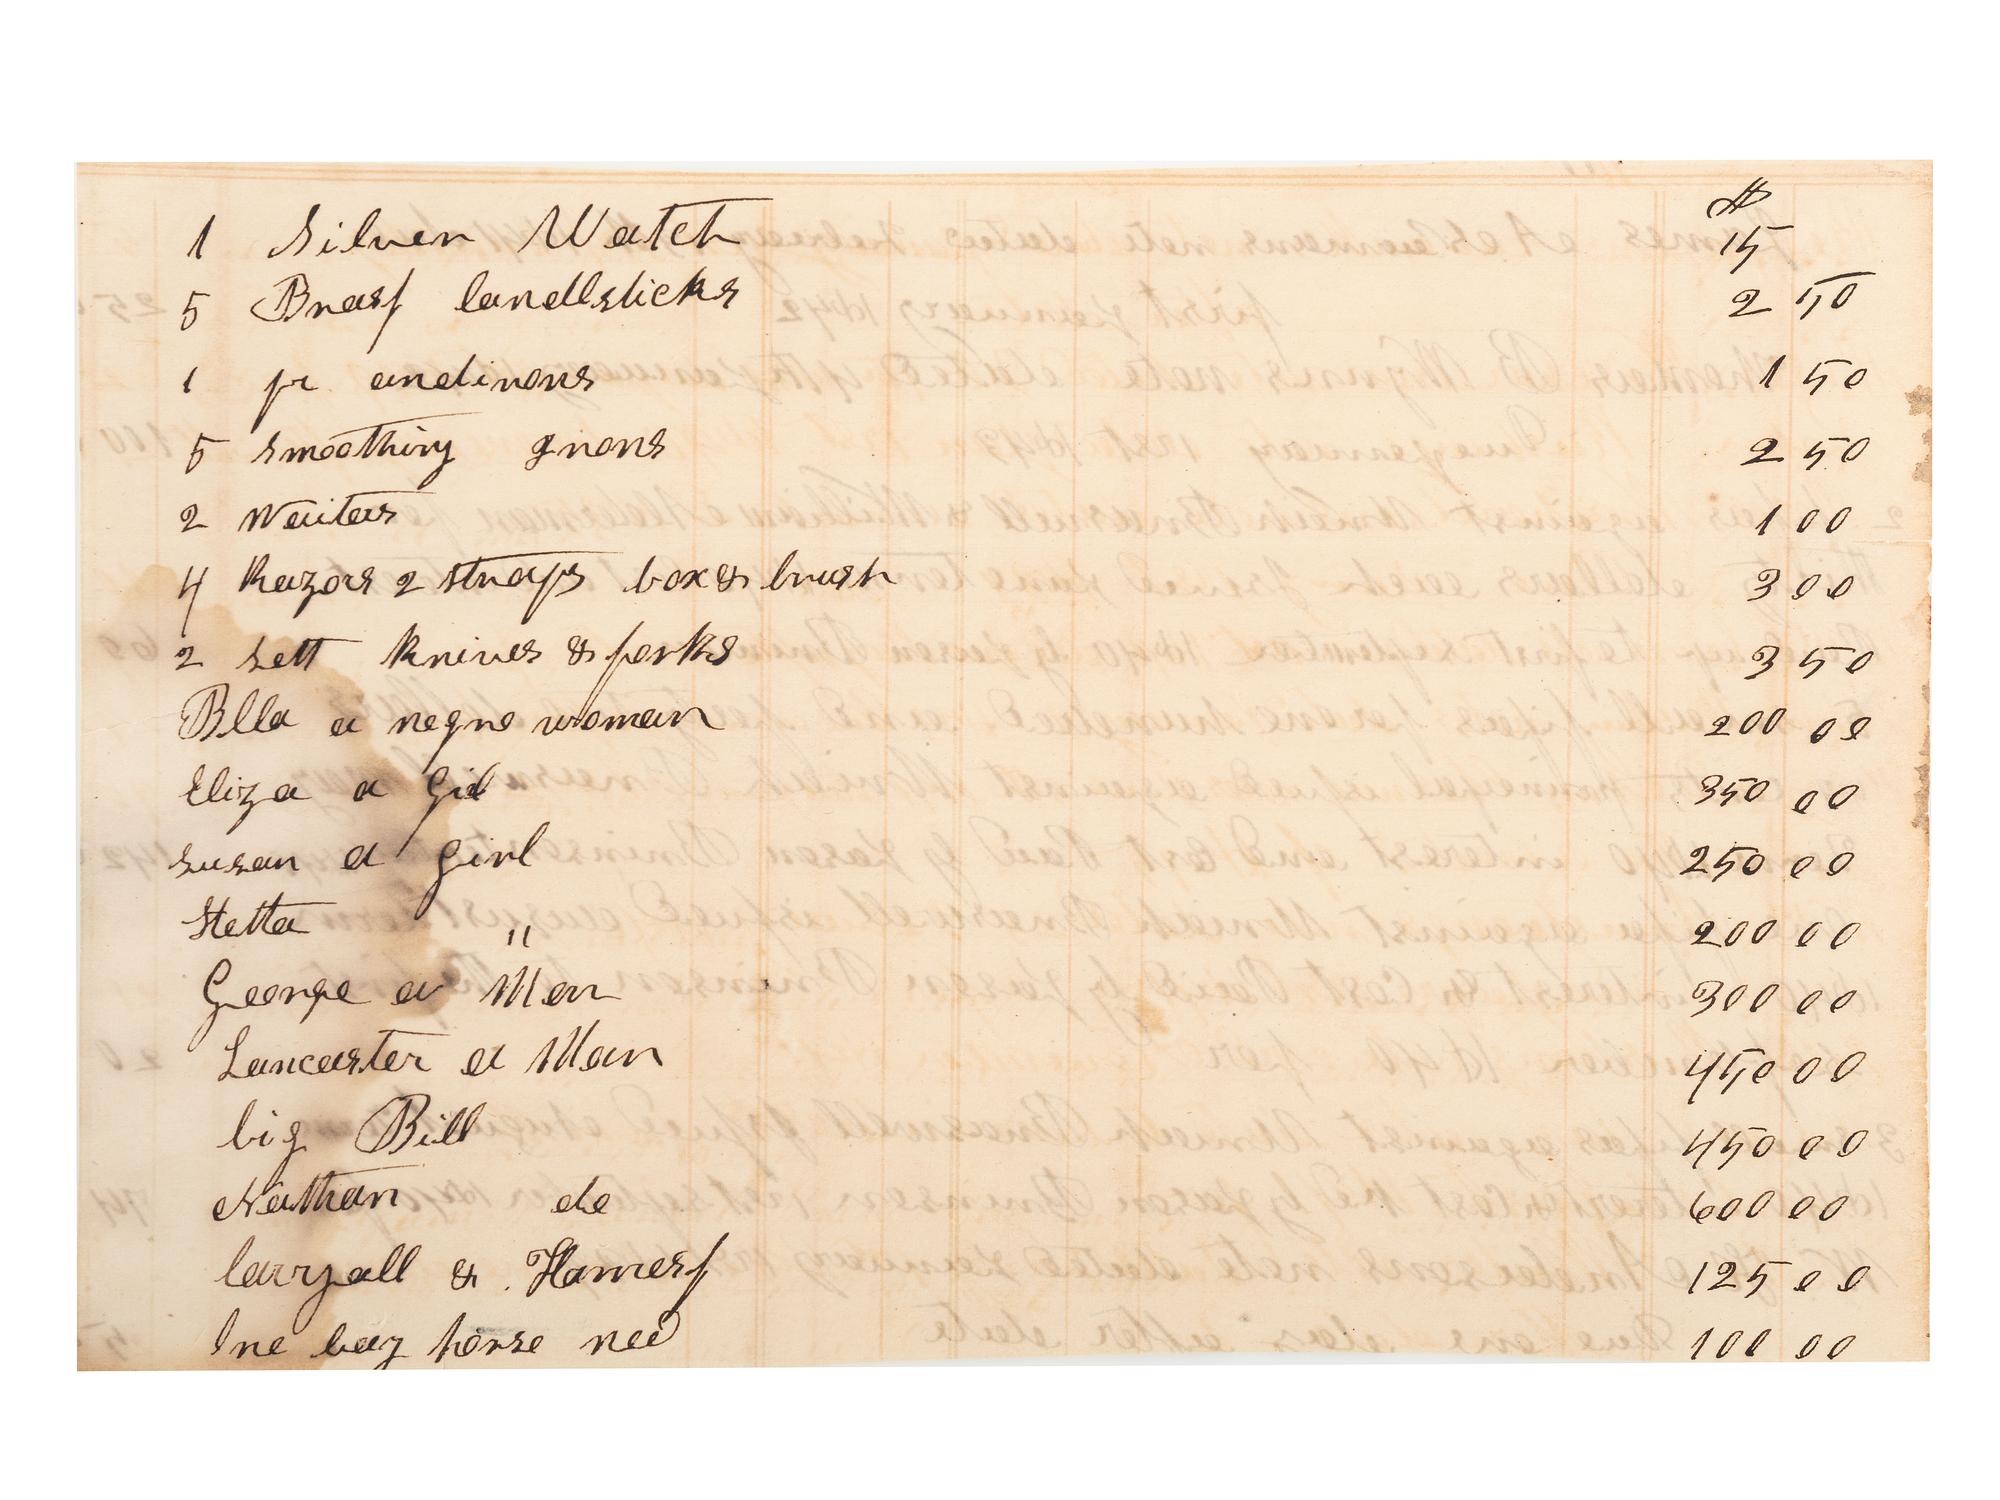 $
1 Silver Watch 15
5 Brass Candlsticks 2 50
1 pr andirons 1 50
5 smoothing irons 2 50
2 Waiters 1 00
4 Razors 2 straps box & brush 3 00
2 sett knives & forks 3 50
Blla a negro woman 200 00
Eliza a Girl 350 00
susan a girl 250 00
Stetta " 200 00
George a Man 300 00
Lancaster a Man 450 00
big Bill 450 00
Nathan do 600 00
Carryall & Harness 125 00
One bay horse ned 100 00